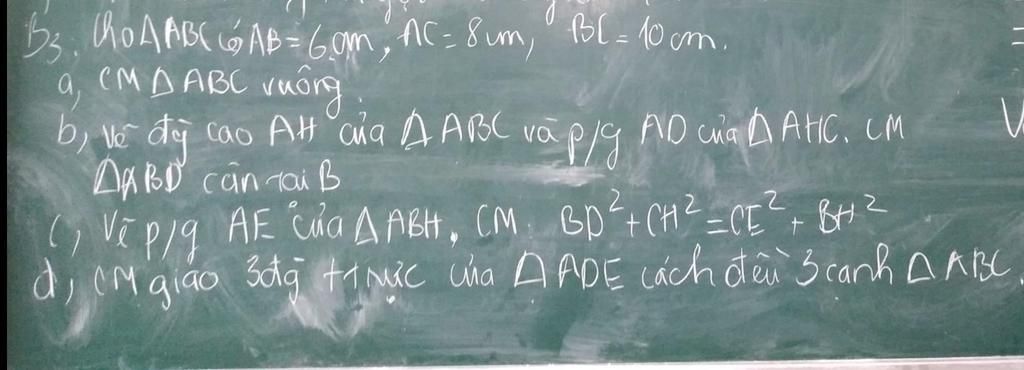 B3. Cho ΔABC có AB = 6cm, AC = 8cm, BC = 10cm.
a, CM Δ ABC vuông.
b, Vẽ đg cao AH của Δ ABC và p/g AD của Δ AHC. CM
ΔABD cân tại B
c, Vẽ p/g AE của Δ ABH. CM. BD² + CH² = CE² + BH²
d, CM giao 3đg ttrực của Δ ADE cách đều 3 cạnh Δ ABC.